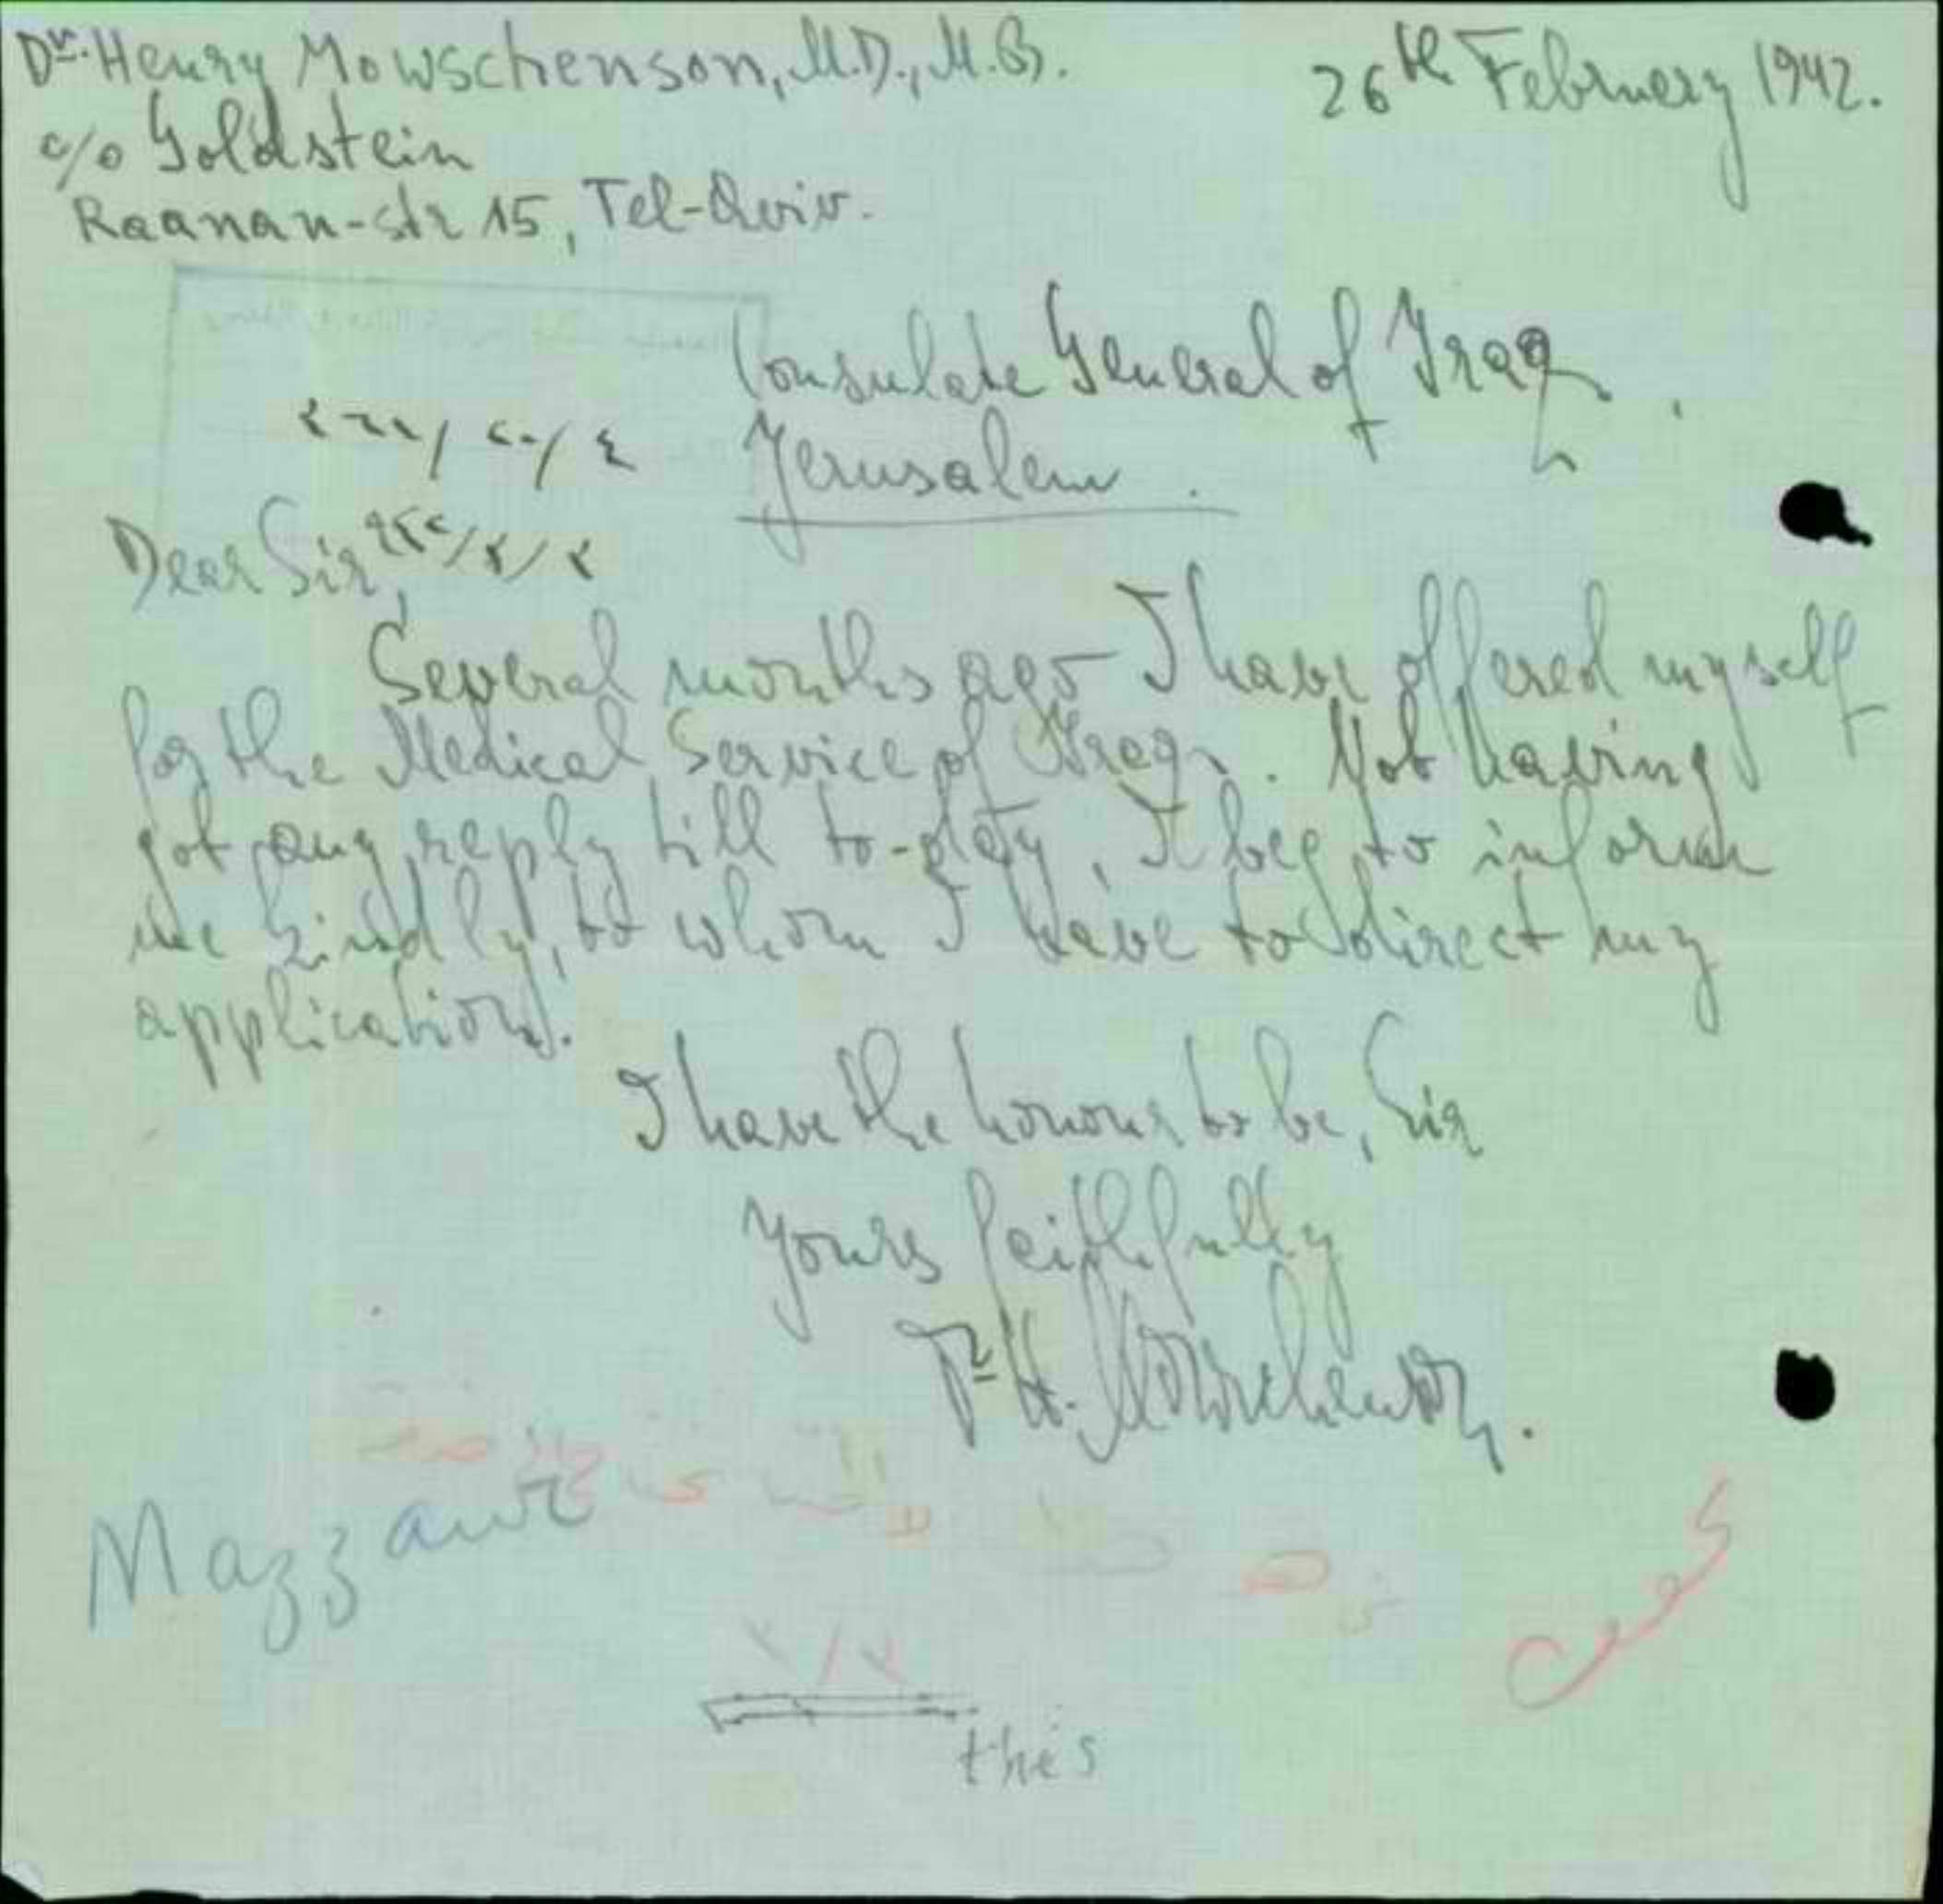 Dr. Henry Mowschenson, M.D., M.B.
26th February 1942.
c/o Goldstein
Raanan-str 15, Tel-Aviv.
Consulate General of Iraq.
Jerusalem.
Dear Sir,
Several months ago I have offered myself
for the Medical Service of Iraq. Not having
got any reply till to-day, I beg to inform
me kindly, to whom I have to direct my
application.
I have the honour to be, Sir
Yours faithfully
Dr H. Mowschenson.
this